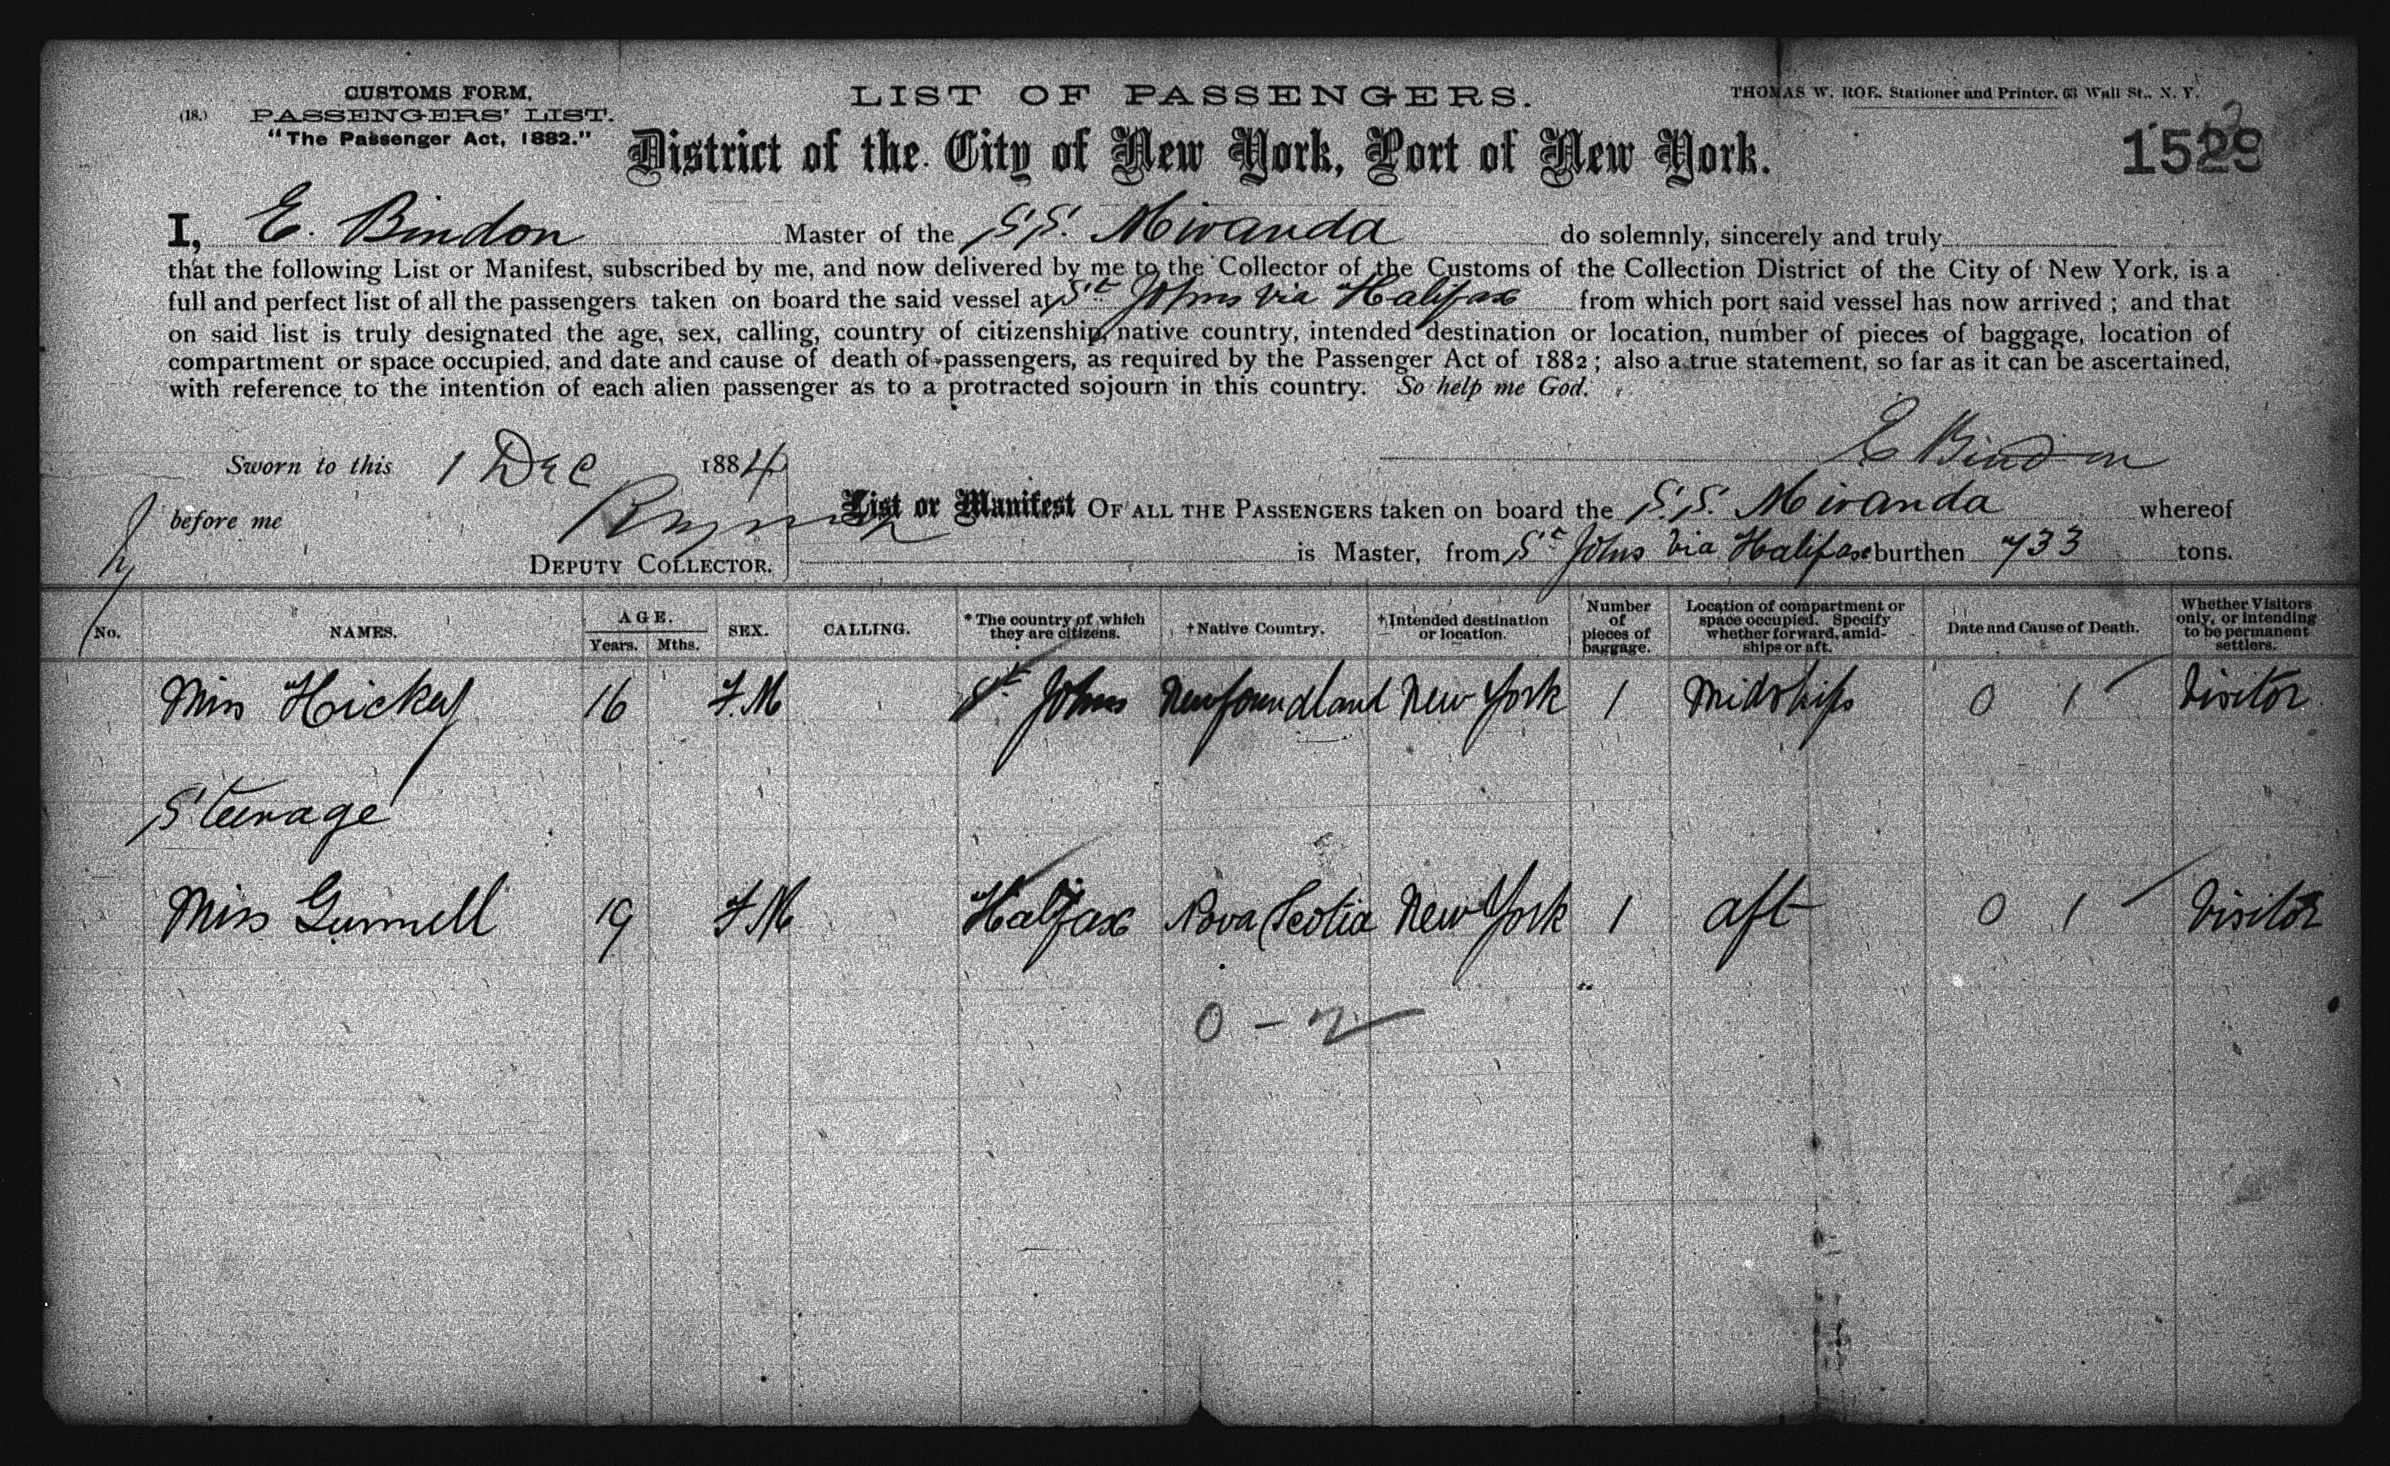 CUSTOMS FORM,
(18.) PASSENGERS' LIST.
"The Passenger Act, 1882."
LIST OF PASSENGERS.
THOMAS W. ROE, Stationer and Printer, 63 Wall St., N. Y.
District of the City of New York, Port of New York.
I, E. Bindon Master of the S.S. Miranda do solemnly, sincerely and truly
that the following List or Manifest, subscribed by me, and now delivered by me to the Collector of the Customs of the Collection District of the City of New York, is a
full and perfect list of all the passengers taken on board the said vessel at St Johns via Halifax from which port said vessel has now arrived; and that
on said list is truly designated the age, sex, calling, country of citizenship, native country, intended destination or location, number of pieces of baggage, location of
compartment or space occupied, and date and cause of death of passengers, as required by the Passenger Act of 1882; also a true statement, so far as it can be ascertained,
with reference to the intention of each alien passenger as to a protracted sojourn in this country. So help me God.
E Bindon
Sworn to this 1 Dec 1884
before me
DEPUTY COLLECTOR.
List or Manifest OF ALL THE PASSENGERS taken on board the S.S. Miranda whereof
is Master, from St Johns via Halifax burthen 733 tons.
No. NAMES. AGE. Years. Mths. SEX. CALLING. *The country of which they are citizens. †Native Country. †Intended destination or location. Number of pieces of baggage. Location of compartment or space occupied. Specify whether forward, amidships or aft. Date and Cause of Death. Whether Visitors only, or intending to be permanent settlers.
Miss Hickey 16 F.M St Johns Newfoundland New York 1 Midships 0 1 Visitor
Steerage
Miss Gunnell 19 F M Halifax Nova Scotia New York 1 aft 0 1 Visitor
0 - 2